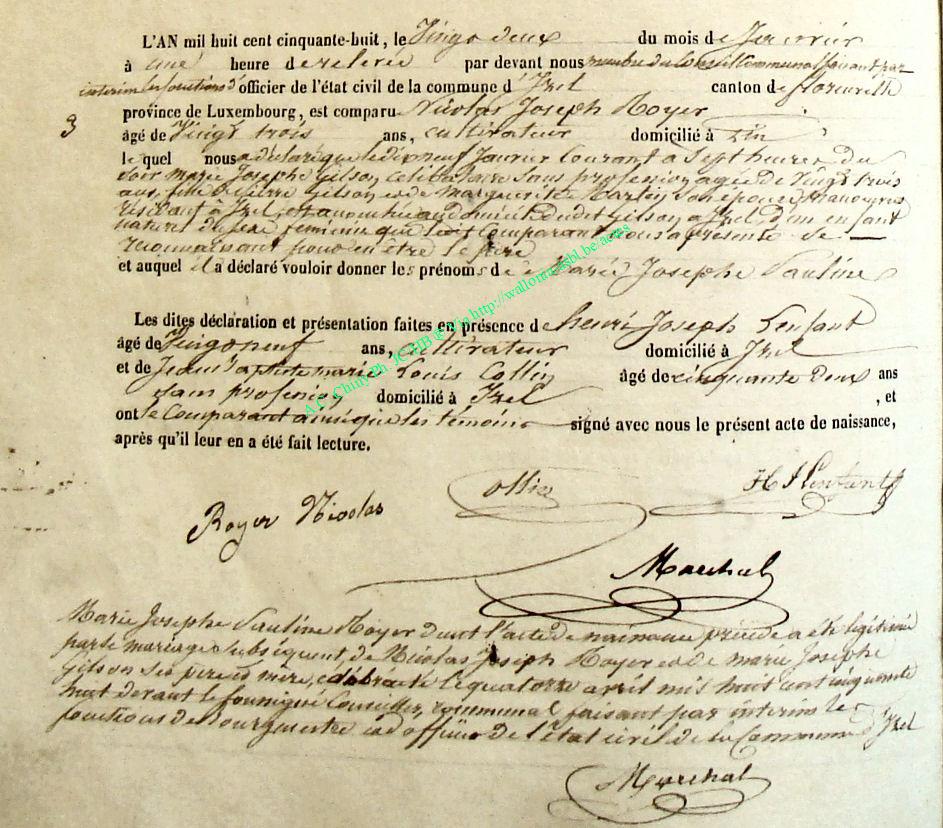 L'AN mil huit cent cinquante-huit, le Vingt deux du mois de Janvier
à une heure de relevée par devant nous membre du Conseil Communal faisant par
interim les fonctions d'officier de l'état civil de la commune d'Izel canton de florenville
province de Luxembourg, est comparu Nicolas Joseph Royer
3
âgé de Vingt trois ans, cultivateur domicilié à
le quel nous a déclaré que le dix neuf Janvier Courant à Sept heures du
Soir marie Josephe Gilson, Célibataire Sans profession agée de Vingt trois
ans, fille de pierre Gilson et de marguerite Son épouse
résidant à Izel, est accouchée au domicile dudit Gilson à Izel d'un enfant
naturel du Sexe feminin que ledit Comparant nous a présenté Se
reconnaissant pour en être le père
et auquel il a déclaré vouloir donner les prénoms de Marie Josephe Pauline
Les dites déclaration et présentation faites en présence de henri Joseph Lenfant
âgé de Vingt neuf ans, cultivateur domicilié à Izel
et de Jean Baptiste marie Louis Collin âgé de cinquante deux ans
sans profession domicilié à Izel , et
ont le Comparant ainsi que les témoins signé avec nous le présent acte de naissance,
après qu'il leur en a été fait lecture.
A.C. Chiny Ph JCHB ® Via http://wallonia-asbl.be/actes
Collin H J Lenfant
Royer Nicolas
Marchal
Marie Josephe Pauline Royer dont l'acte de naissance précède a été légitimée
par le mariage Subséquent, de Nicolas Joseph Royer et de marie Josephe
Gilson Ses père et mère, célébré le quatorze avril mil huit cent cinquante
huit devant le soussigné Conseiller communal faisant par interim les
fonctions de Bourgmestre et d'officier de l'état civil de la Commune d'Izel
Marchal